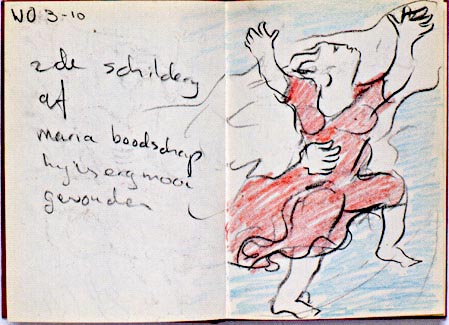 WO 3-10
2de schildery
af
maria boodschap
hy is erg mooi
geworden